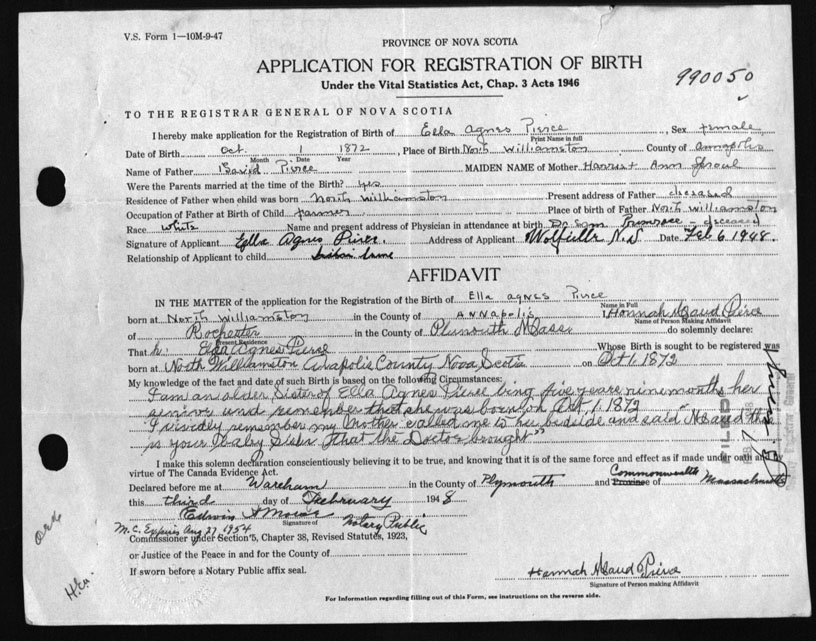 V.S. Form 1—10M-9-47
PROVINCE OF NOVA SCOTIA
APPLICATION FOR REGISTRATION OF BIRTH
Under the Vital Statistics Act, Chap. 3 Acts 1946
990050
TO THE REGISTRAR GENERAL OF NOVA SCOTIA
I hereby make application for the Registration of Birth of Ella Agnes Pierce, Sex female
Print Name in full
Date of Birth Oct. 1 1872, Place of Birth North Williamston County of Annapolis
Month Date Year
Name of Father David Pierce MAIDEN NAME of Mother Harriet Ann
Were the Parents married at the time of the Birth? yes
Residence of Father when child was born North Williamston Present address of Father deceased
Occupation of Father at Birth of Child farmer Place of birth of Father North Williamston
Race white Name and present address of Physician in attendance at birth Dr Sam - deceased
Signature of Applicant Ella Agnes Pierce. Address of Applicant Wolfville N.S Date Feb 6, 1948.
Relationship of Applicant to child
AFFIDAVIT
IN THE MATTER of the application for the Registration of the Birth of Ella Agnes Pierce
Name in Full
born at North Williamston in the County of Annapolis I, Hannah Maud Pierce
Name of Person Making Affidavit
of Rochester in the County of Plymouth Mass do solemnly declare:
Present Residence
That Ella Agnes Pierce Whose Birth is sought to be registered was
born at North Williamston Anapolis County Nova Scotia on Oct 1, 1872
My knowledge of the fact and date of such Birth is based on the following Circumstances:
I am an older Sister of Ella Agnes Pierce being five years nine months her
senior and remember that she was born on Oct, 1, 1872
I vividly remember my Mother called me to her bedside and said "Maud this
is your Baby Sister that the Doctor brought"
I make this solemn declaration conscientiously believing it to be true, and knowing that it is of the same force and effect as if made under oath by
virtue of The Canada Evidence Act.
Declared before me at Wareham in the County of Plymouth and Commonwealth Province of Massachusetts
this third day of February 1948
Edwin Notary Public
Signature of
M.C. Expires Aug 27, 1954
Commissioner under Section 5, Chapter 38, Revised Statutes, 1923,
or Justice of the Peace in and for the County of
If sworn before a Notary Public affix seal.
Hannah Maud Pierce
Signature of Person making Affidavit
For Information regarding filling out of this Form, see instructions on the reverse side.
FILED